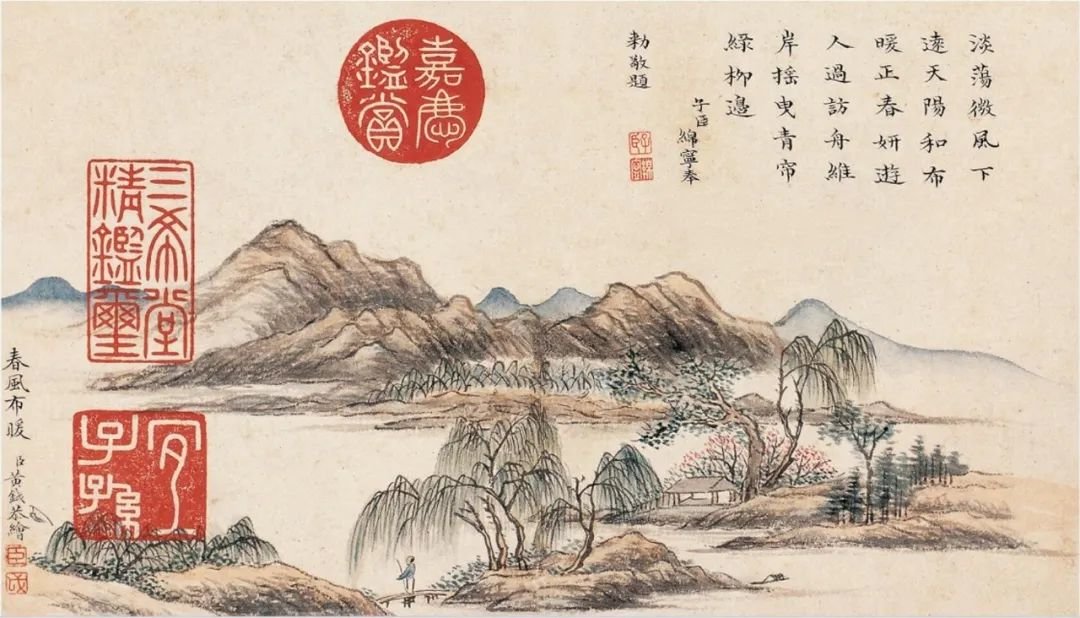 淡蕩微風下
遠天陽和布
暖正春妍遊
人過訪舟維
岸搖曳青帘
綠柳邊
子臣綿寧奉
勅敬題
嘉慶
鑑賞
三希堂
精鑑璽
宜
子孫
春風布暖
臣黃鉞恭繪